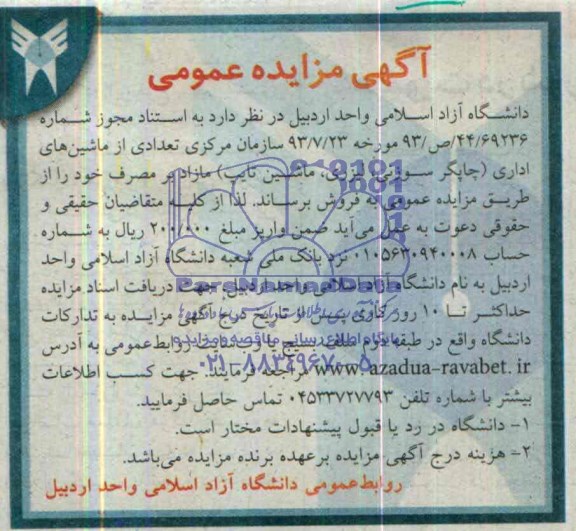 آگهی مزایده عمومی
دانشگاه آزاد اسلامی واحد اردبیل در نظر دارد به استناد مجوز شماره
۴۴/۶۹۲۳۶/ص/۹۳ مورخه ۹۳/۷/۲۳ سازمان مرکزی تعدادی از ماشین‌های
اداری (چاپگر سوزنی، لیزری، ماشین تایپ) مازاد بر مصرف خود را از
طریق مزایده عمومی به فروش برساند. لذا از کلیه متقاضیان حقیقی و
حقوقی دعوت به عمل می‌آید ضمن واریز مبلغ ۲۰۰/۰۰۰ ریال به شماره
حساب ۰۱۰۵۶۳۰۹۴۰۰۰۸ نزد بانک ملی شعبه دانشگاه آزاد اسلامی واحد
اردبیل به نام دانشگاه آزاد اسلامی واحد اردبیل جهت دریافت اسناد مزایده
حداکثر تا ۱۰ روز کاری پس از تاریخ درج آگهی مزایده به تدارکات
دانشگاه واقع در طبقه دوم یا سایت روابط‌عمومی به آدرس
www.azadua-ravabet.ir مراجعه فرمایند. جهت کسب اطلاعات
بیشتر با شماره تلفن ۰۴۵۳۳۷۲۷۷۹۳ تماس حاصل فرمایید.
۱- دانشگاه در رد یا قبول پیشنهادات مختار است.
۲- هزینه درج آگهی مزایده برعهده برنده مزایده می‌باشد.
روابط‌عمومی دانشگاه آزاد اسلامی واحد اردبیل